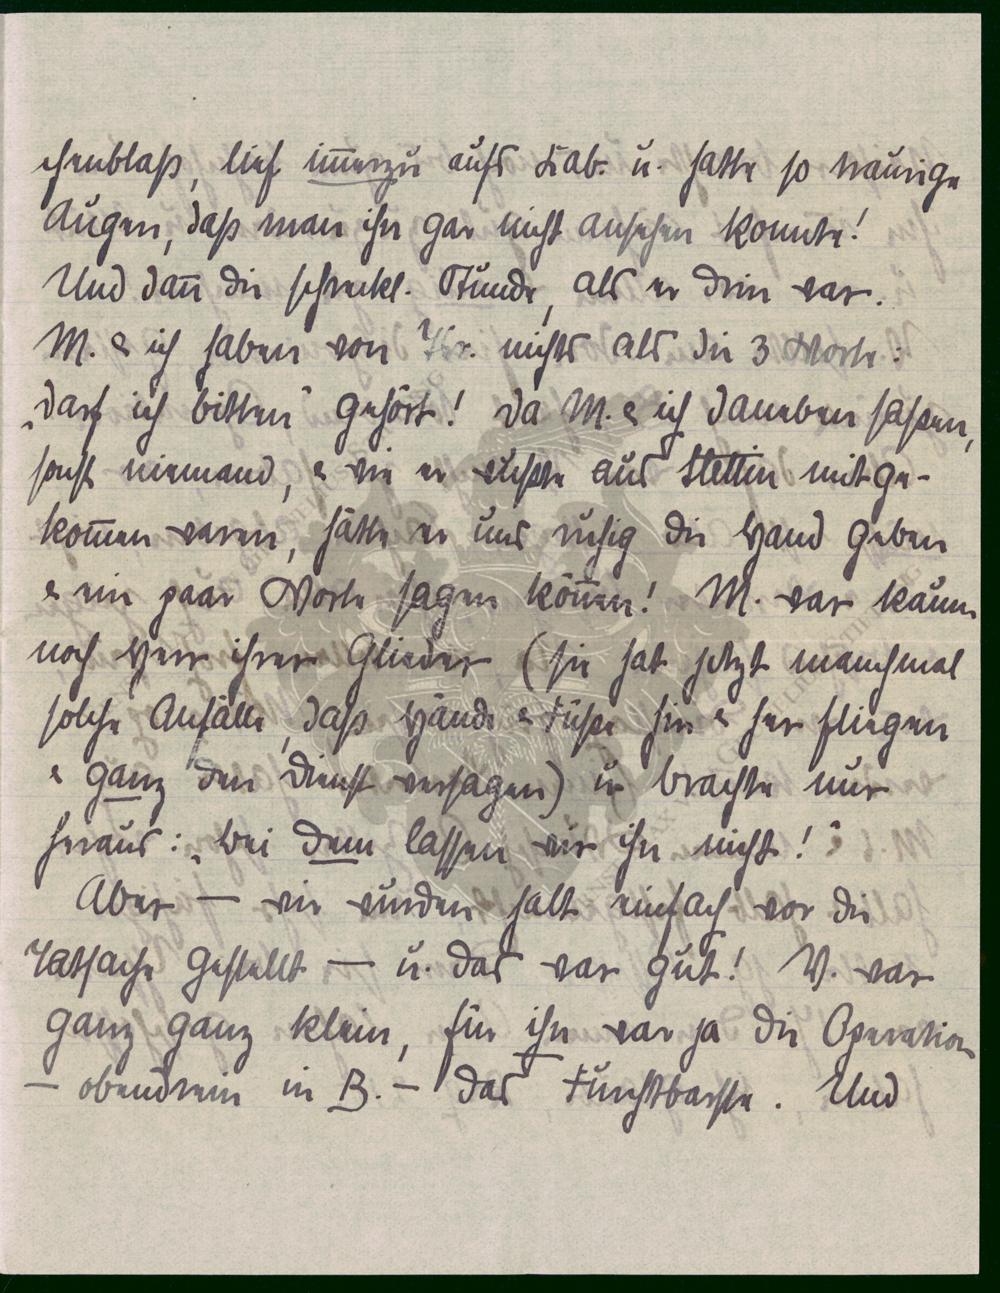 chenblaß, lief immerzu aufs Lab. u. hatte so traurige
Augen, daß man ihn gar nicht ansehen konnte!
Und dann die schreckl. Stunde, als er drin war.
M. & ich haben von Kr. nichts als die 3 Worte:
„darf ich bitten" gehört! Da M. & ich daneben saßen,
sonst niemand, & wie er wußte aus Stettin mitge-
kommen waren, hätte er uns ruhig die Hand geben
& ein paar Worte sagen können! M. war kaum
noch Herr ihrer Glieder (sie hat jetzt manchmal
solche Anfälle, daß Hände & Füße hin & her fliegen
& ganz den Dienst versagen) u brachte nur
heraus: „bei dem lassen wir ihn nicht!"
Aber — wir wurden halt einfach vor die
Tatsache gestellt — u. das war gut! V. war
ganz ganz klein, für ihn war ja die Operation
— obendrein in B. — das Furchtbarste. Und